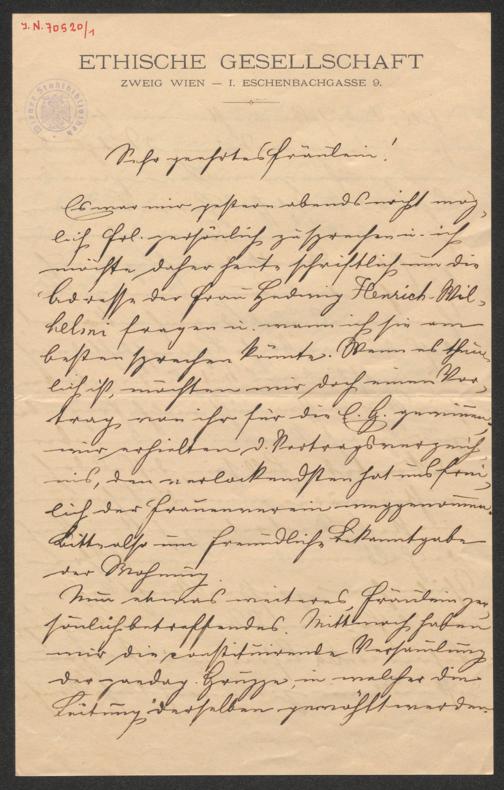 J.N. 70520/1
ETHISCHE GESELLSCHAFT
ZWEIG WIEN — I. ESCHENBACHGASSE 9.
Wiener Stadtbibliothek
Sehr geehrtes Fräulein!
Es war mir gestern abends nicht mög-
lich Frl. persönlich zu sprechen u. ich
möchte daher heute schriftlich um die
Adresse der Frau Hedwig Henrich-Wil-
helmi fragen u. wann ich sie am
besten sprechen könnte. Wenn es thun-
lich ist, möchten wir doch einen Vor-
trag von ihr für die E. G. gewinnen,
wir erhielten d. Vortragsverzeich-
nis, den verlockendsten hat uns frei-
lich der Frauenverein weggenommen.
Bitte also um freundliche Bekanntgabe
der Wohnung.
Nun etwas weiteres, Fräulein per-
sönlich betreffendes. Mittwoch haben
wir die constituirende Versammlung
der paedag. Gruppe, in welcher die
Leitung derselben gewählt werden